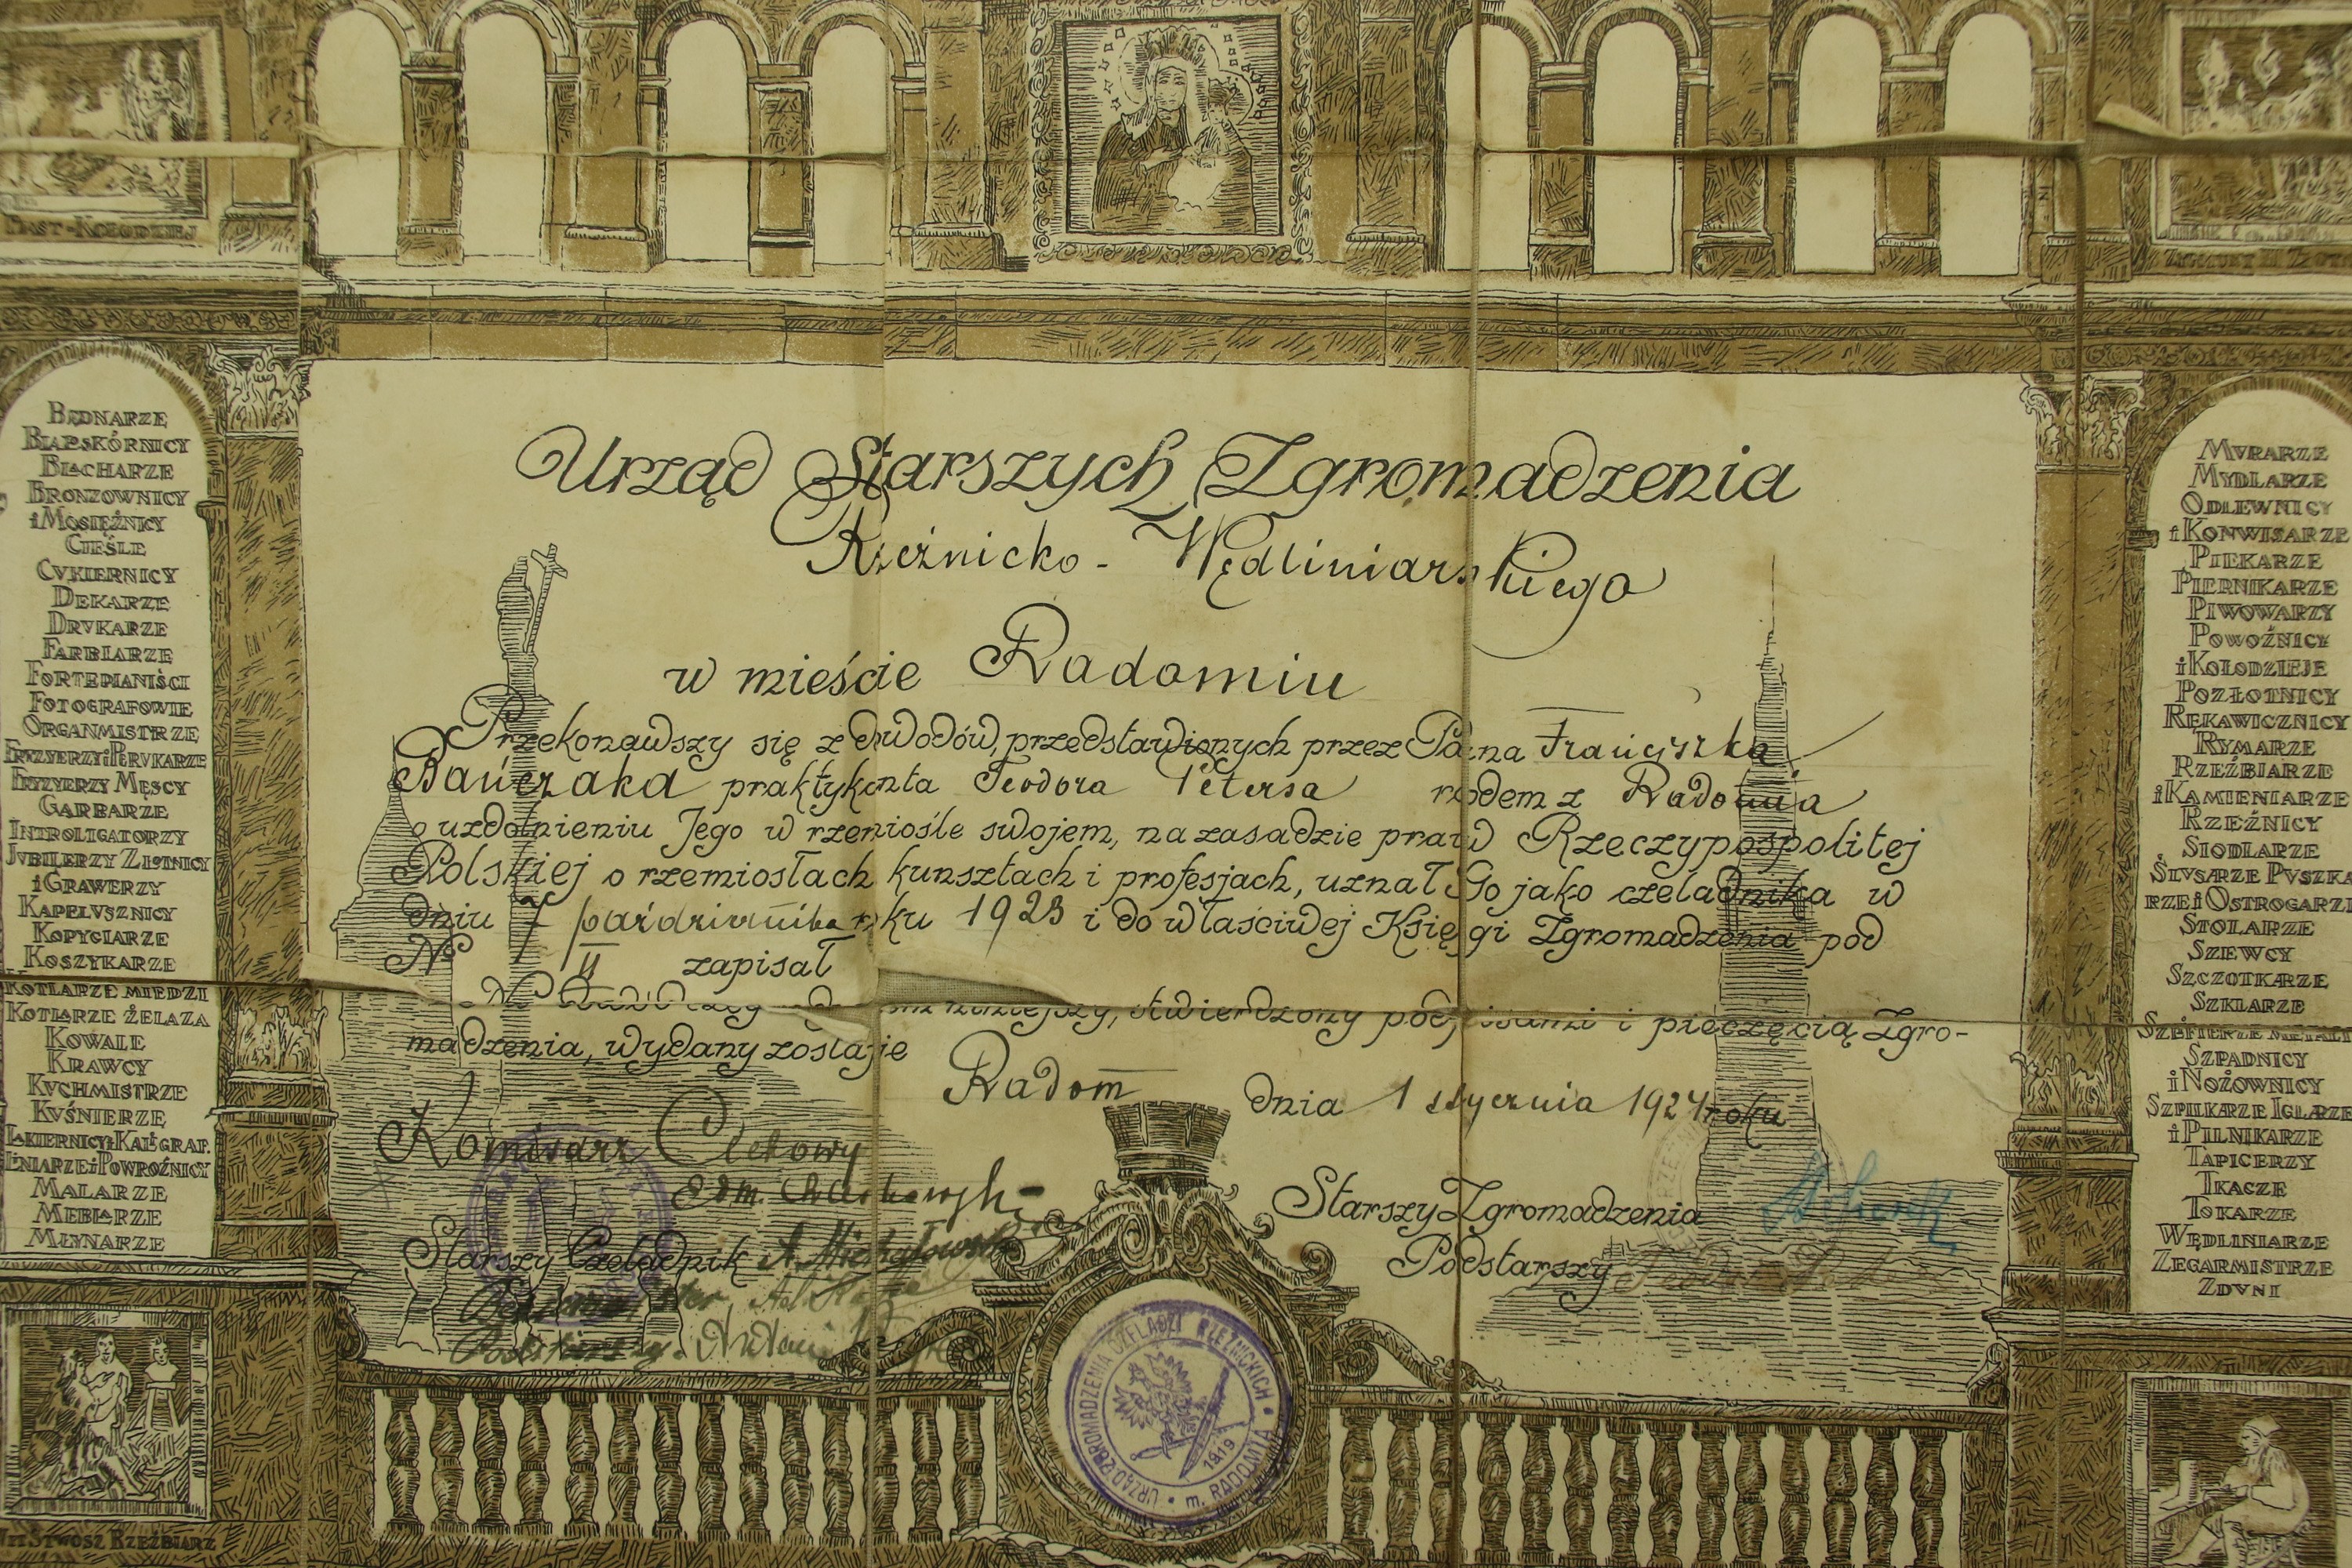 PIAST-KOŁODZIEJ
ZYGMUNT III
BĘDNARZE
BIAŁOSKÓRNICY
BLACHARZE
BRONZOWNICY
i MOSIĘŻNICY
CIEŚLE
CVKIERNICY
DEKARZE
DRVKARZE
FARBIARZE
FORTEPIANIŚCI
FOTOGRAFOWIE
ORGANMISTRZE
FRYZYERZY i PERVKARZE
FRYZYERZY MĘSCY
GARBARZE
INTROLIGATORZY
JVBILERZY ZŁOTNICY
i GRAWERZY
KAPELVSZNICY
KOPYCIARZE
KOSZYKARZE
KOTLARZE MIEDZI
KOTLARZE ŻELAZA
KOWALE
KRAWCY
KVCHMISTRZE
KVŚNIERZE
LAKIERNICY i KALIGRAF.
LINIARZE i POWROŹNICY
MALARZE
MEBLARZE
MŁYNARZE
Urząd Starszych Zgromadzenia
Rzeźnicko - Wędliniarskiego
w mieście Radomiu
Przekonawszy się z dowodów, przedstawionych przez Pana Franciszka
Bańczaka praktykanta Teodora Petersa rodem z Radomia
o uzdolnieniu Jego w rzemiośle swojem, na zasadzie praw Rzeczypospolitej
Polskiej o rzemiosłach kunsztach i profesjach, uznał Go jako czeladnika w
dniu 7 października roku 1923 i do właściwej Księgi Zgromadzenia pod
№ II zapisał
niniejszy, stwierdzony podpisami i pieczęcią Zgro-
madzenia, wydany zostaje
Radom dnia 1 stycznia 1924 roku
Komisarz Cechowy
Edm.
Starszy Czeladnik A. Michałowski
Starszy Zgromadzenia
Podstarszy
Podskarbi
URZĄD ZGROMADZENIA CZELADZI RZEŹNICKICH • m. RADOMIA •
1919
MVRARZE
MYDLARZE
ODLEWNICY
i KONWISARZE
PIEKARZE
PIERNIKARZE
PIWOWARZY
POWOŹNICY
i KOŁODZIEJE
POZŁOTNICY
RĘKAWICZNICY
RYMARZE
RZEŹBIARZE
i KAMIENIARZE
RZEŹNICY
SIODLARZE
ŚLVSARZE PVSZKA
RZE i OSTROGARZE
STOLARZE
SZEWCY
SZCZOTKARZE
SZKLARZE
SZLIFIERZE METALI
SZPADNICY
i NOŻOWNICY
SZPILKARZE IGLARZE
i PILNIKARZE
TAPICERZY
TKACZE
TOKARZE
WĘDLINIARZE
ZEGARMISTRZE
ZDVNI
WIT STWOSZ RZEŹBIARZ